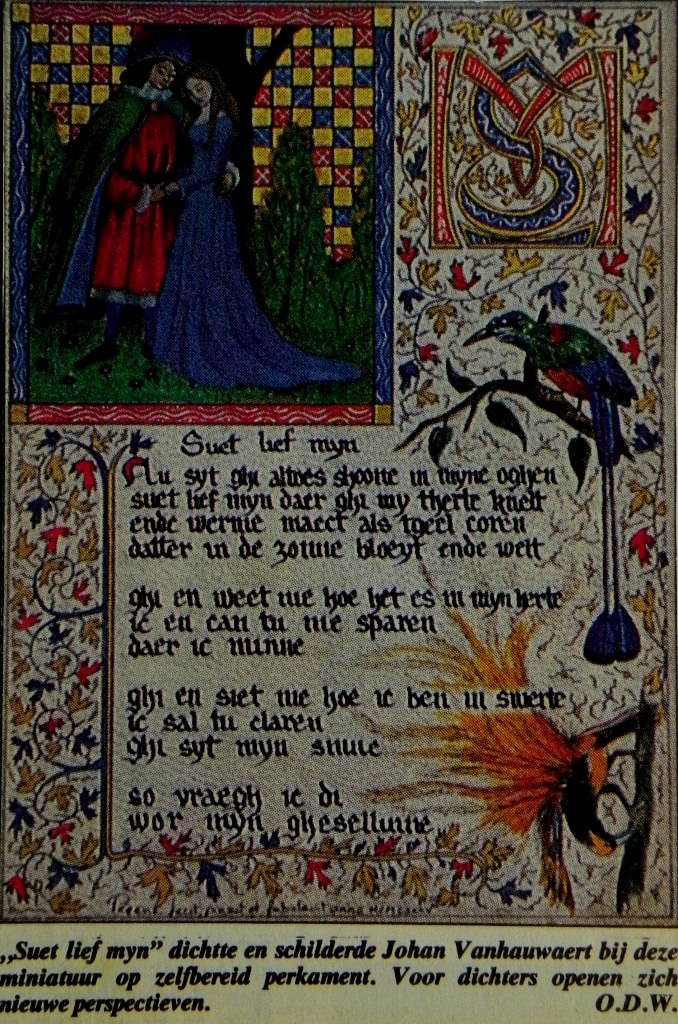 Suet lief myn
Nu syt ghi altoes shoone in myne oghen
suet lief myn daer ghi my therte knelt
ende werme maect als tgeel coren
datter in de zonne bloeyt ende welt
ghi en weet nie hoe het es in myn herte
ic en can tu nie sparen
daer ic minne
ghi en siet nie hoe ic ben in smerte
ic sal tu claren
ghi syt myn sinne
so vraegh ic di
wor myn ghesellinne
,,Suet lief myn” dichtte en schilderde Johan Vanhauwaert bij deze
miniatuur op zelfbereid perkament. Voor dichters openen zich
nieuwe perspectieven. O.D.W.